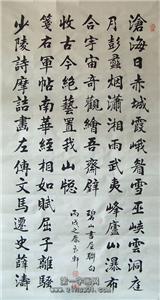 滄海日赤城霞峨眉雪巫峽雲洞庭
月彭蠡烟瀟湘雨武夷峰廬山瀑布
合宇宙奇觀繪吾齋壁
少陵詩摩詰畫左傳文馬遷史薛濤
箋右軍帖南華經相如賦屈子離騷
收古今絕藝置我山窗
碧山書屋聯句
丙戌之春